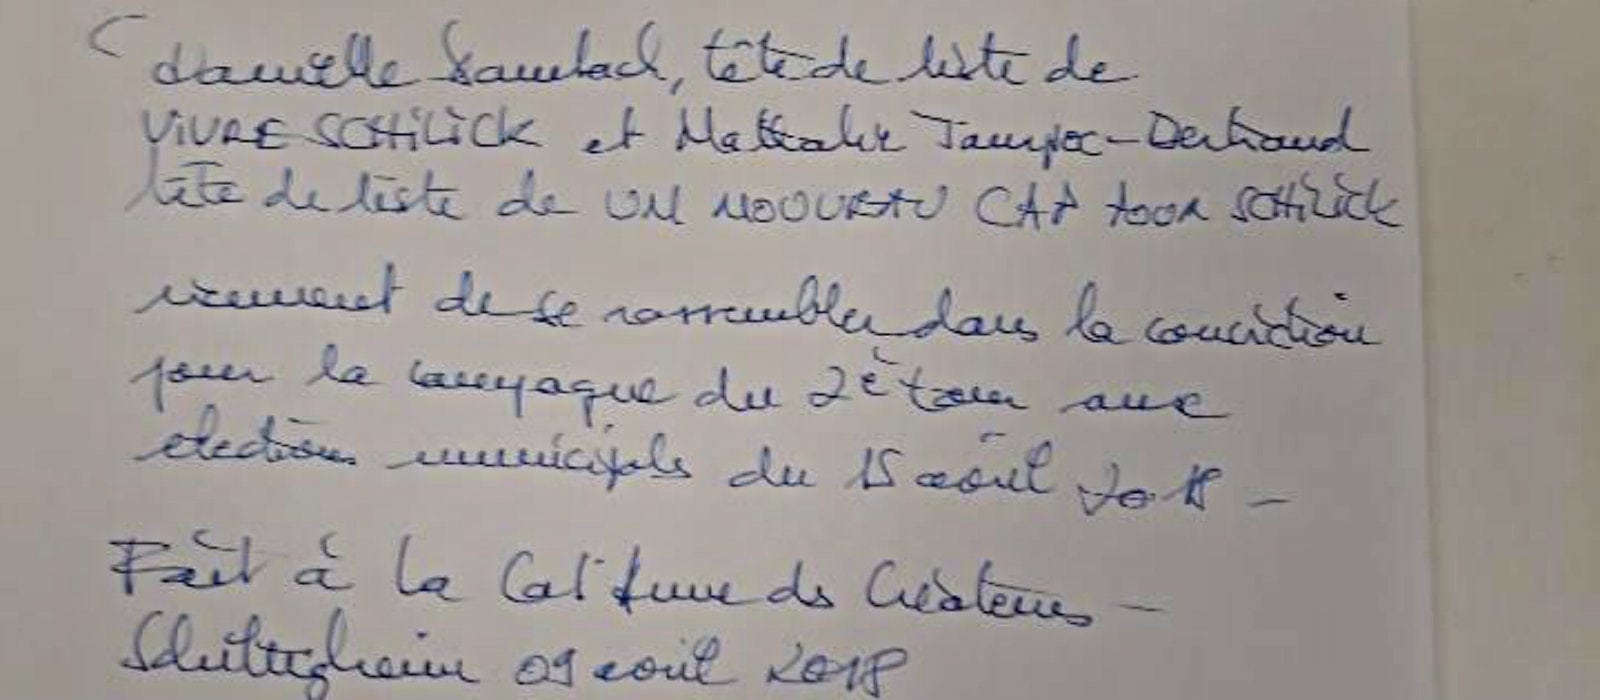 danielle Dambach, tête de liste de
VIVRE SCHILICK et Nathalie Jampoc-Bertrand
tête de liste de UN NOUVEAU CAP POUR SCHILICK
viennent de se rassembler dans la conviction
pour la campagne du 2è tour aux
élections municipales du 15 août 2018 -
Fait à la Cat'fume des Créateurs -
Schiltigheim 09 août 2018